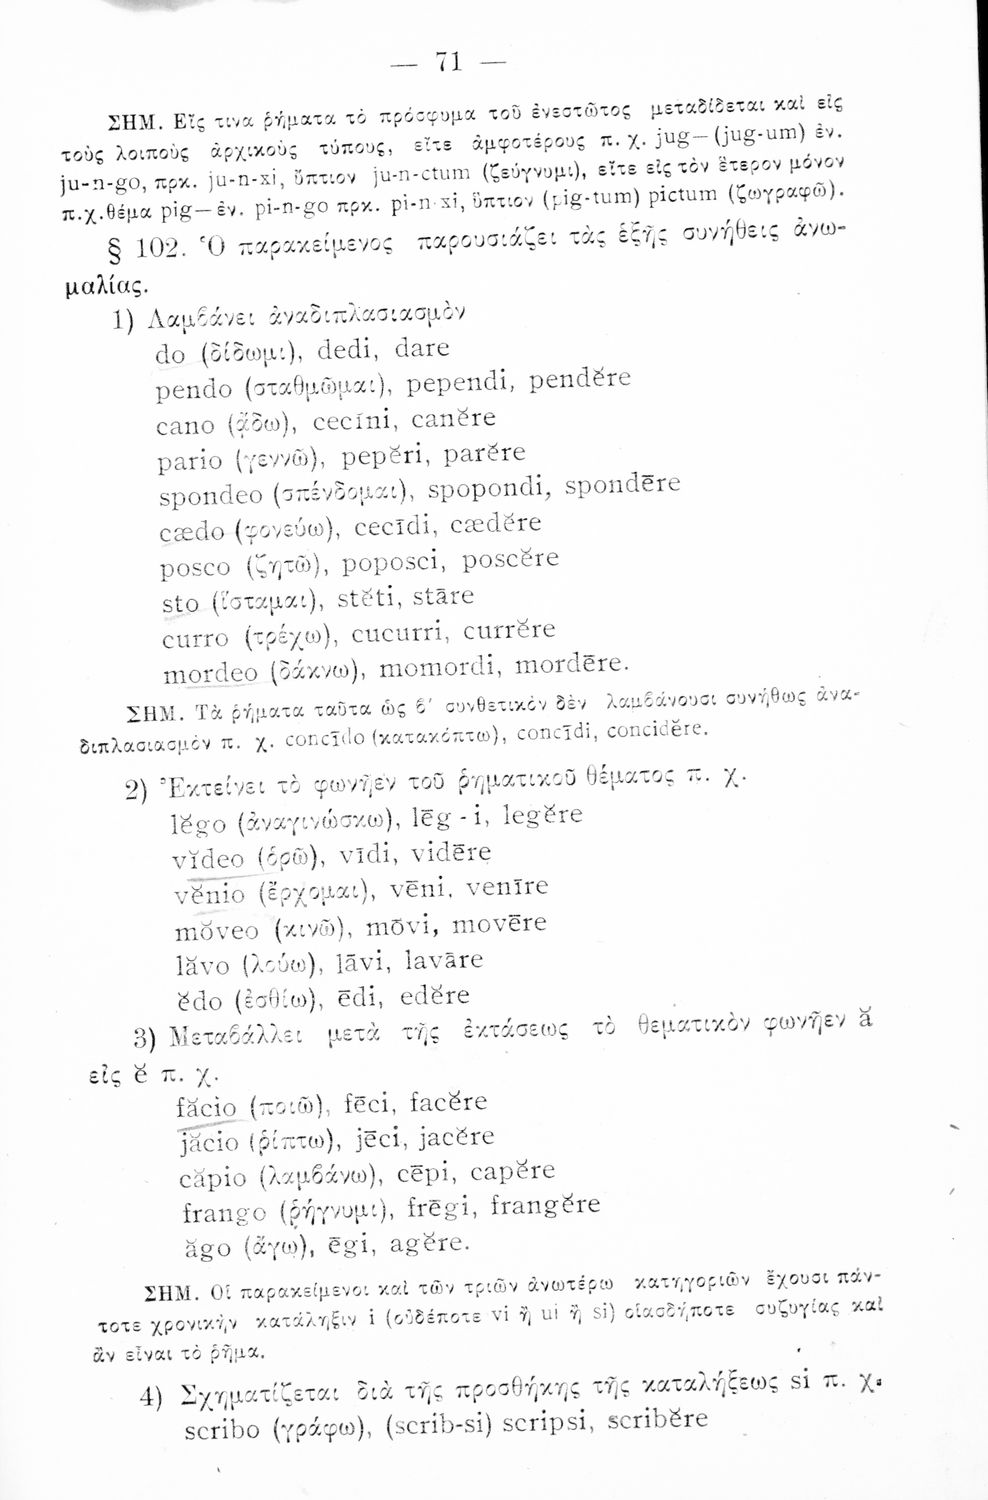 — 71 —
ΣΗΜ. Εἴς τινα ῥήματα τὸ πρόσφυμα τοῦ ἐνεστῶτος μεταδίδεται καὶ εἰς
τοὺς λοιποὺς ἀρχικοὺς τύπους, εἴτε ἀμφοτέρους π. χ. jug— (jug-um) ἐν.
ju-n-go, πρκ. ju-n-xi, ὕπτιον ju-n-ctum (ζεύγνυμι), εἴτε εἰς τὸν ἕτερον μόνον
π.χ.θέμα pig— ἐν. pi-n-go πρκ. pi-n-xi, ὕπτιον (pig-tum) pictum (ζωγραφῶ).
§ 102. Ὁ παρακείμενος παρουσιάζει τὰς ἑξῆς συνήθεις ἀνω-
μαλίας.
1) Λαμβάνει ἀναδιπλασιασμὸν
do (δίδωμι), dedi, dare
pendo (σταθμῶμαι), pependi, pendĕre
cano (ᾄδω), cecĭni, canĕre
pario (γεννῶ), pepĕri, parĕre
spondeo (σπένδομαι), spopondi, spondēre
cædo (φονεύω), cecīdi, cædĕre
posco (ζητῶ), poposci, poscĕre
sto (ἵσταμαι), stĕti, stāre
curro (τρέχω), cucurri, currĕre
mordeo (δάκνω), momordi, mordēre.
ΣΗΜ. Τὰ ῥήματα ταῦτα ὡς β΄ συνθετικόν δὲν λαμβάνουσι συνήθως ἀνα-
διπλασιασμόν π. χ. concīdo (κατακόπτω), concīdi, concidĕre.
2) Ἐκτείνει τὸ φωνῆεν τοῦ ῥηματικοῦ θέματος π. χ.
lĕgo (ἀναγινώσκω), lēg - i, legĕre
vĭdeo (ὁρῶ), vīdi, vidēre
vĕnio (ἔρχομαι), vēni, venīre
mŏveo (κινῶ), mōvi, movēre
lăvo (λούω), lāvi, lavāre
ĕdo (ἐσθίω), ēdi, edĕre
3) Μεταβάλλει μετὰ τῆς ἐκτάσεως τὸ θεματικὸν φωνῆεν ă
εἰς ĕ π. χ.
făcio (ποιῶ), fēci, facĕre
jăcio (ῥίπτω), jēci, jacĕre
căpio (λαμβάνω), cēpi, capĕre
frango (ῥήγνυμι), frēgi, frangĕre
ăgo (ἄγω), ēgi, agĕre.
ΣΗΜ. Οἱ παρακείμενοι καὶ τῶν τριῶν ἀνωτέρω κατηγοριῶν ἔχουσι πάν-
τοτε χρονικὴν κατάληξιν i (οὐδέποτε vi ἢ ui ἢ si) οἱασδήποτε συζυγίας καὶ
ἂν εἶναι τὸ ῥῆμα.
4) Σχηματίζεται διὰ τῆς προσθήκης τῆς καταλήξεως si π. χ.
scribo (γράφω), (scrib-si) scripsi, scribĕre